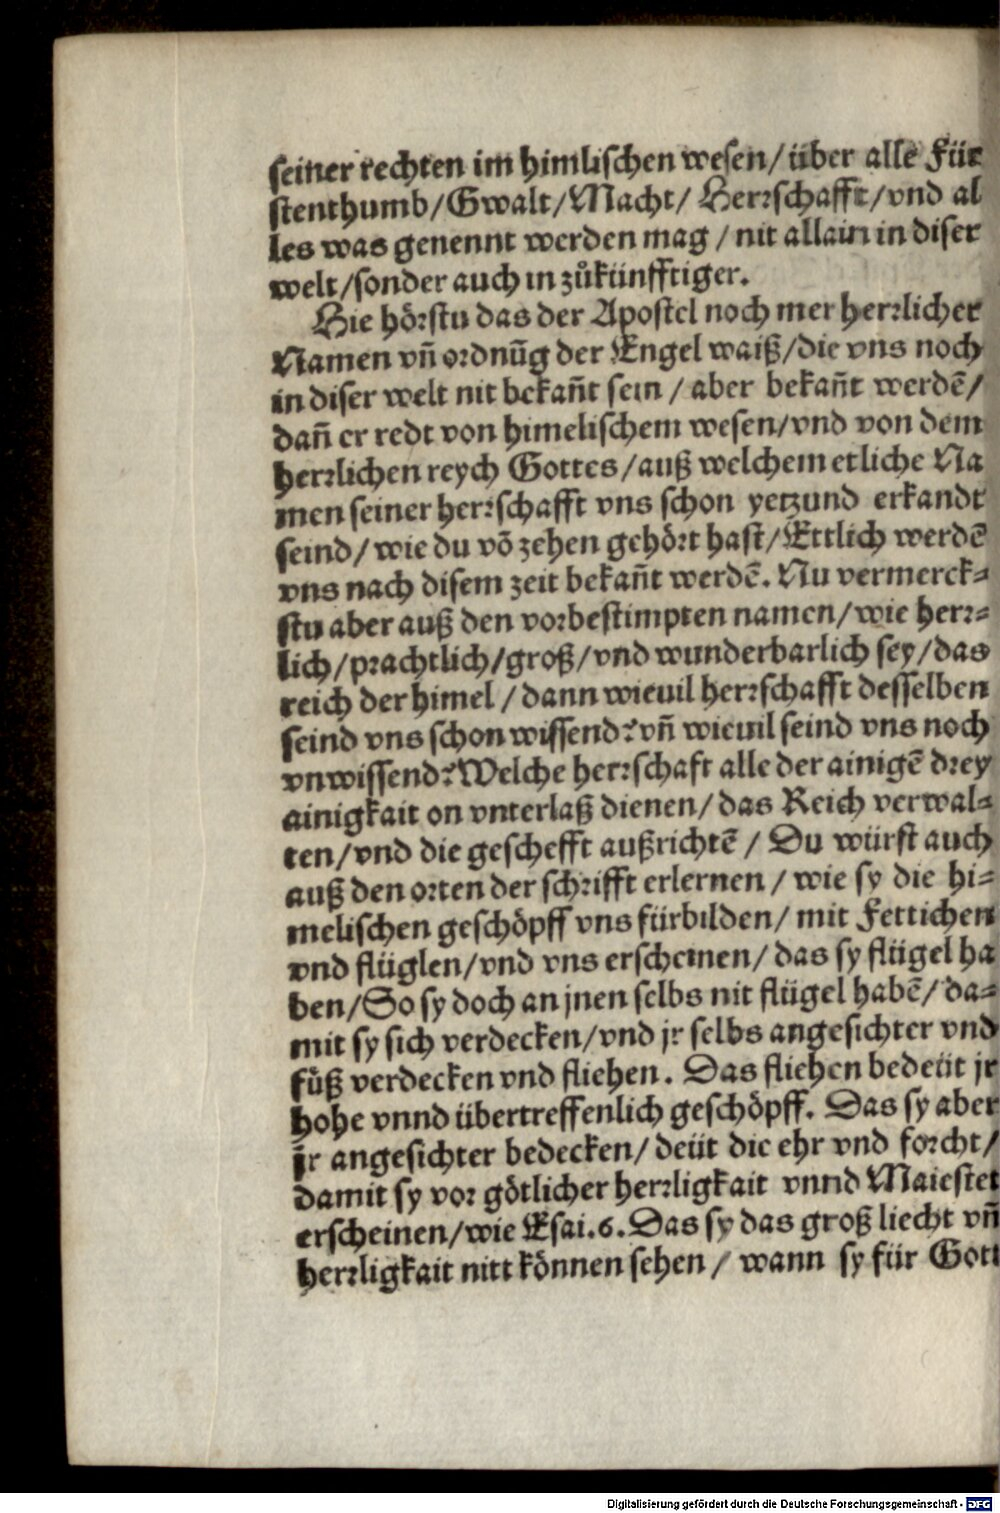 seiner rechten im himlischen wesen/ über alle Für
stenthumb/Gwalt/Macht/ Herrschafft/vnd al
les was genennt werden mag / nit allain in diser
welt/sonder auch in zůkünfftiger.
Hie hörstu das der Apostel noch mer herrlicher
Namen vñ ordnũg der Engel waiß/die vns noch
in diser welt nit bekañt sein / aber bekañt werdē/
dañ er redt von himelischem wesen/vnd von dem
herrlichen reych Gottes/auß welchem etliche Na
men seiner herrschafft vns schon yetzund erkandt
seind/ wie du võ zehen gehört hast/Ettlich werdē
vns nach disem zeit bekañt werdē. Nu vermerck⸗
stu aber auß den vorbestimpten namen/wie herr⸗
lich/prachtlich/groß/vnd wunderbarlich sey/das
reich der himel / dann wieuil herrschafft desselben
seind vns schon wissend? vñ wieuil seind vns noch
vnwissend? Welche herrschaft alle der ainigē drey
ainigkait on vnterlaß dienen/ das Reich verwal⸗
ten/vnd die geschefft außrichtē / Du würst auch
auß den orten der schrifft erlernen / wie sy die hi⸗
melischen geschöpff vns fürbilden/ mit Fettichen
vnd flüglen/vnd vns erscheinen/ das sy flügel ha
ben/So sy doch an jnen selbs nit flügel habē/ da⸗
mit sy sich verdecken/vnd jr selbs angesichter vnd
fůß verdecken vnd fliehen. Das fliehen bedeüt jr
hohe vnnd übertreffenlich geschöpff. Das sy aber
jr angesichter bedecken/ deüt die ehr vnd forcht/
damit sy vor götlicher herrligkait vnnd Maiestet
erscheinen/wie Esai.6. Das sy das groß liecht vñ
herrligkait nitt können sehen / wann sy für Gott
Digitalisierung gefördert durch die Deutsche Forschungsgemeinschaft - DFG